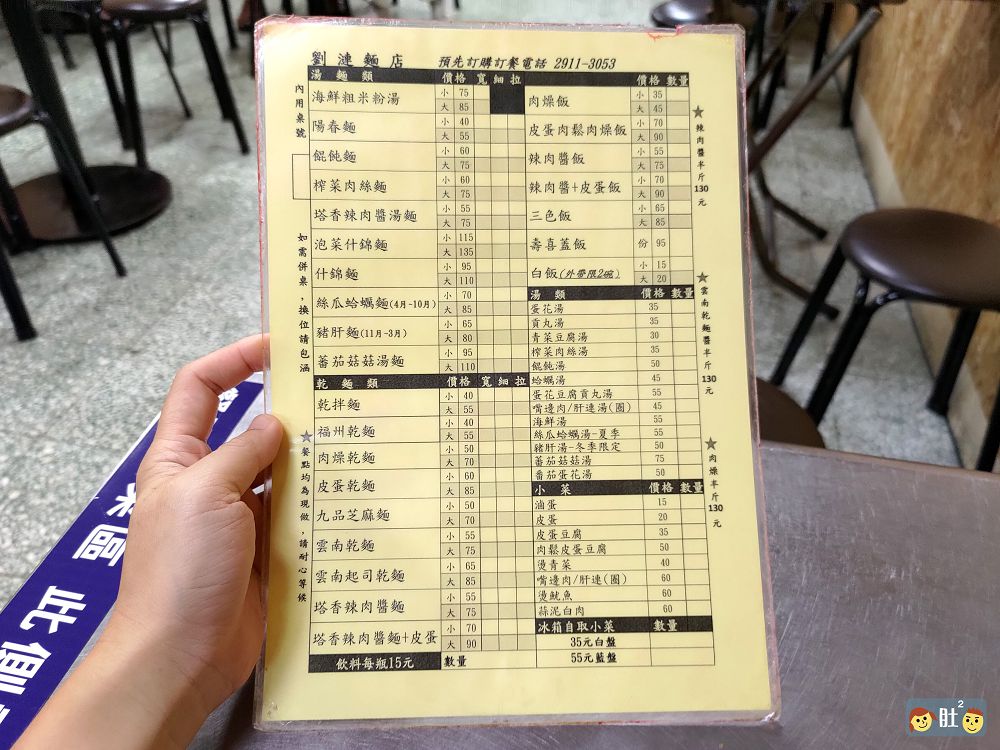 劉漣麵店 預先訂購訂餐電話 2911-3053
內用桌號
如需併桌，換位請包涵
★餐點均為現做，請耐心等候
湯麵類 價格 寬 細 拉
海鮮粗米粉湯 小 75 大 85
陽春麵 小 40 大 55
餛飩麵 小 60 大 75
榨菜肉絲麵 小 60 大 75
塔香辣肉醬湯麵 小 55 大 75
泡菜什錦麵 小 115 大 135
什錦麵 小 95 大 110
絲瓜蛤蠣麵(4月~10月) 小 70 大 85
豬肝麵(11月~3月) 小 65 大 80
蕃茄菇菇湯麵 小 95 大 110
乾麵類 價格 寬 細 拉
乾拌麵 小 40 大 55
福州乾麵 小 40 大 55
肉燥乾麵 小 50 大 70
皮蛋乾麵 小 60 大 85
九品芝麻麵 小 50 大 70
雲南乾麵 小 55 大 75
雲南起司乾麵 小 65 大 85
塔香辣肉醬麵 小 55 大 75
塔香辣肉醬麵+皮蛋 小 70 大 90
飲料每瓶15元 數量
價格 數量
肉燥飯 小 35 大 45
皮蛋肉鬆肉燥飯 小 70 大 90
辣肉醬飯 小 55 大 75
辣肉醬+皮蛋飯 小 70 大 90
三色飯 小 65 大 85
壽喜蓋飯 份 95
白飯(外帶限2碗) 小 15 大 20
湯類 價格 數量
蛋花湯 35
貢丸湯 35
青菜豆腐湯 30
榨菜肉絲湯 35
餛飩湯 50
蛤蠣湯 45
蛋花豆腐貢丸湯 55
嘴邊肉/肝連湯(團) 45
海鮮湯 55
絲瓜蛤蠣湯-夏季 55
豬肝湯-冬季限定 50
蕃茄菇菇湯 75
蕃茄蛋花湯 50
小菜 價格 數量
滷蛋 15
皮蛋 20
皮蛋豆腐 35
肉鬆皮蛋豆腐 50
燙青菜 40
嘴邊肉/肝連(團) 60
燙魷魚 60
蒜泥白肉 60
冰箱自取小菜 數量
35元白盤
55元藍盤
★辣肉醬半斤130元
★雲南乾麵醬半斤130元
★肉燥半斤130元
區 此側
肚2